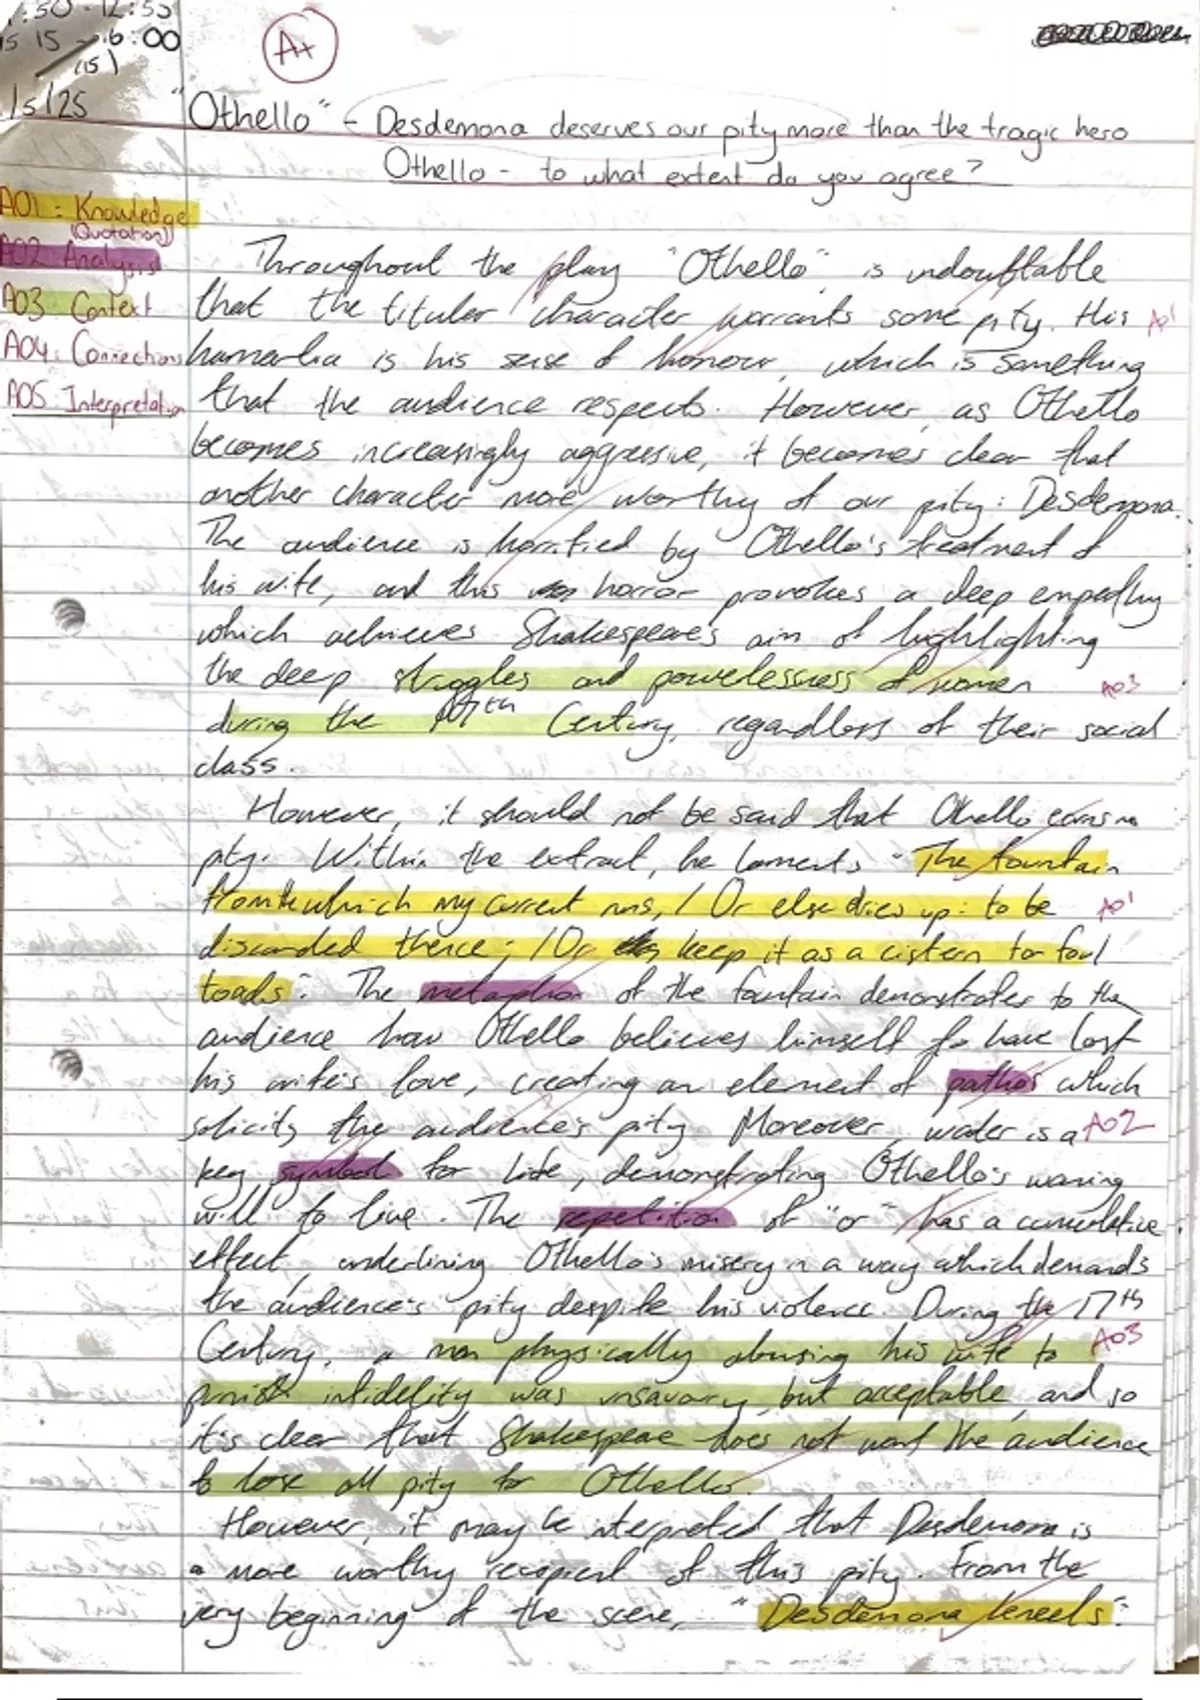 :50 - 12:55
15 15 - 16:00
(15)
A+
/5/25
"Othello" - Desdemona deserves our pity more than the tragic hero
Othello - to what extent do you agree?
AO1 : Knowledge
(Quotation)
AO2 Analysis
AO3 Context
AO4: Connections
AO5 Interpretation
Throughout the play "Othello", is undoubtable
that the titular character warrants some pity. His AO1
hamartia is his sense of honour, which is something
that the audience respects. However, as Othello
becomes increasingly aggressive, it becomes clear that
another character more worthy of our pity: Desdemona.
The audience is horrified by Othello's treatment of
his wife, and this horror provokes a deep empathy
which achieves Shakespeare's aim of highlighting
the deep struggles and powerlessness of women AO3
during the 17th Century, regardless of their social
class.
However, it should not be said that Othello earns no
pity. Within the extract, he laments "The fountain
from the which my current runs, / Or else dries up: to be AO1
discarded thence; / Or keep it as a cistern for foul
toads". The metaphor of the fountain demonstrates to the
audience how Othello believes himself to have lost
his wife's love, creating an element of pathos which
solicits the audience's pity Moreover, water is a AO2
key symbol for life, demonstrating Othello's waning
will to live. The repetition of "or" has a cumulative
effect, underlining Othello's misery in a way which demands
the audience's pity despite his violence. During the 17th
Century, a man physically abusing his wife to AO3
punish infidelity was unsavoury, but acceptable, and so
it's clear that Shakespeare does not want the audience
to lose all pity for Othello.
However, it may be interpreted that Desdemona is
a more worthy recipient of this pity. From the
very beginning of the scene, "Desdemona kneels".